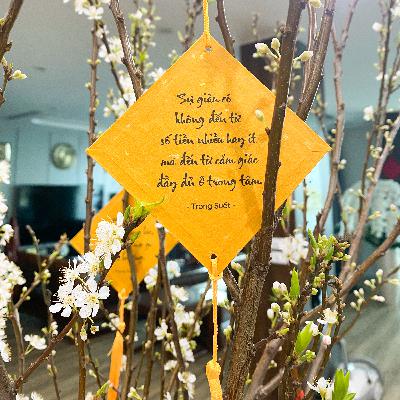 Sự giàu có
không đến từ
số tiền nhiều hay ít
mà đến từ cảm giác
đầy đủ ở trong tâm
- Trong Suốt -